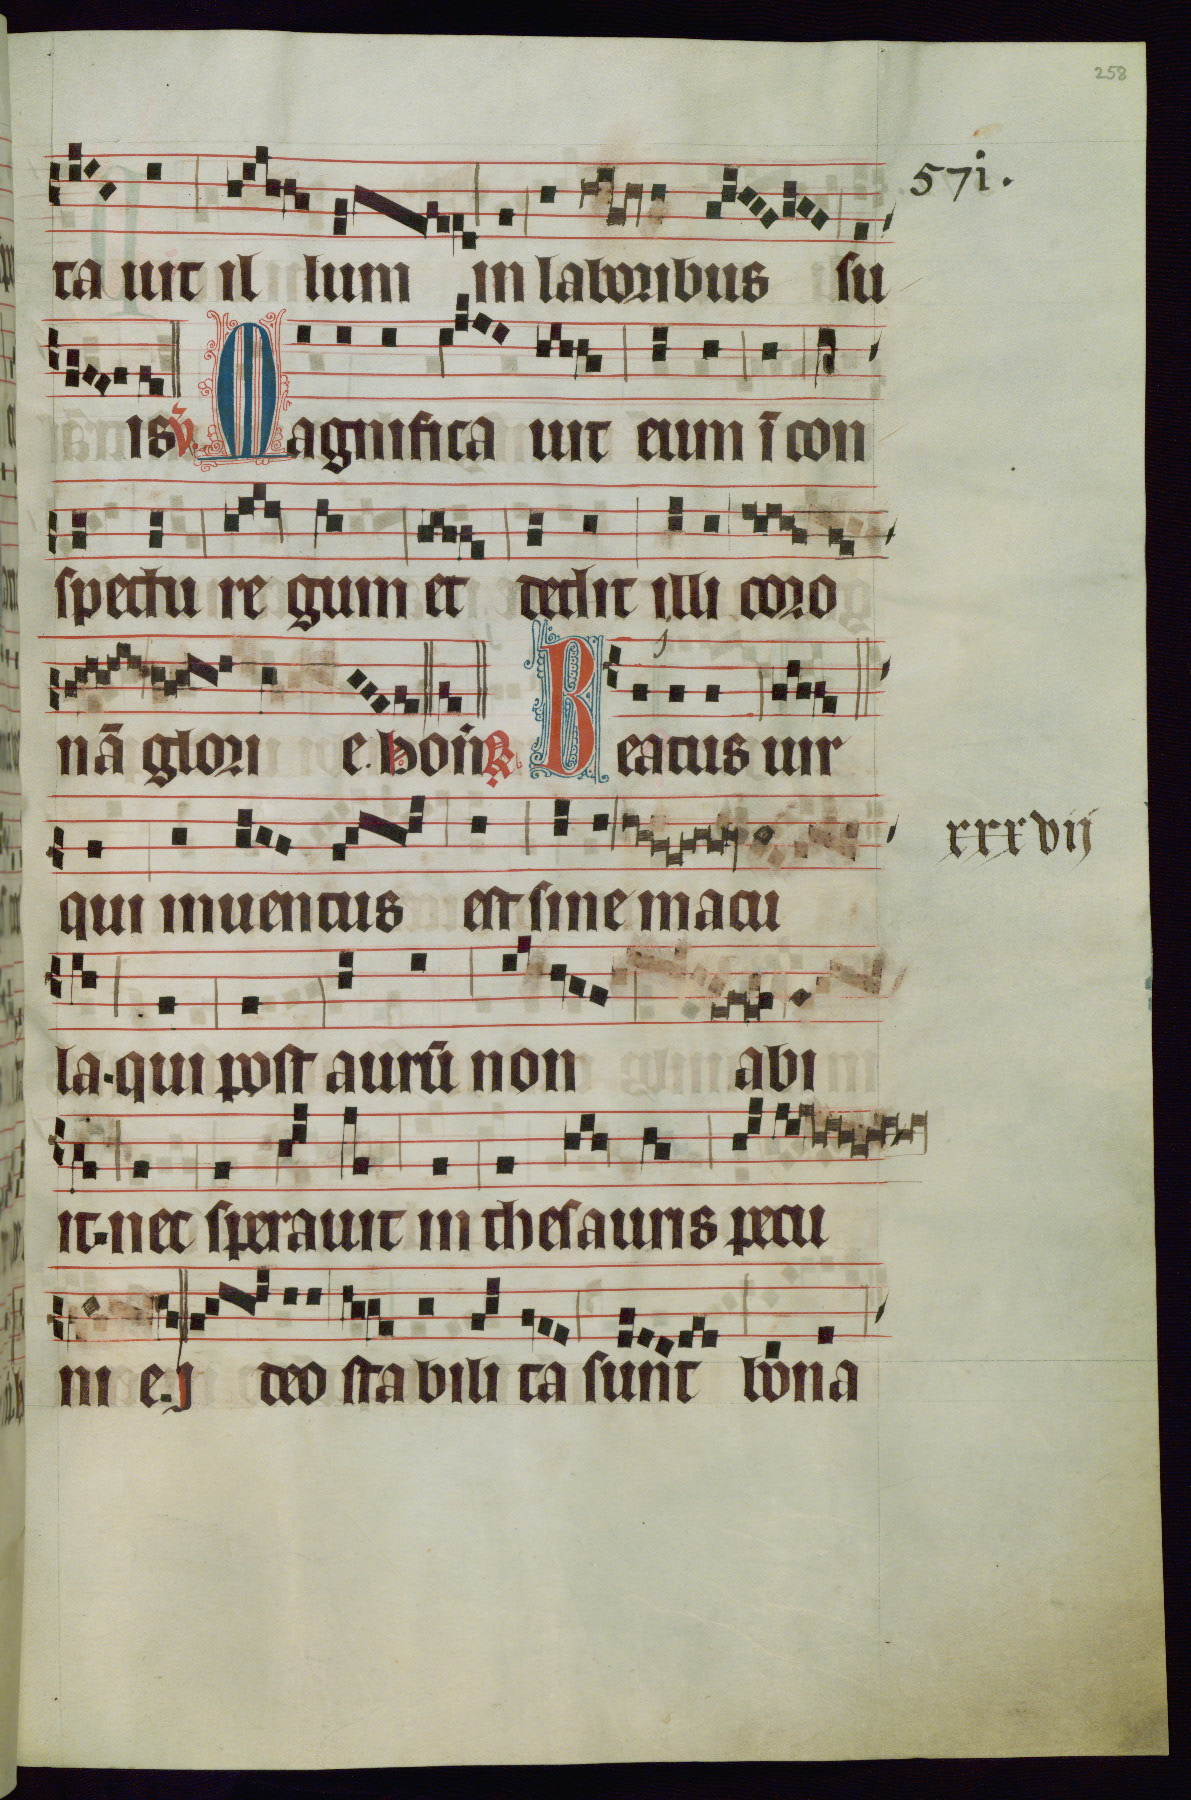 258
57i.
ta uit il lum in laboribus su
is ℣. Magnifica uit eum ī con
spectu re gum et dedit illi coro
nā glori e. hon̄ ℟. Beatus uir
xxxvij
qui inuentus est sine macu
la·qui post aurū non abi
it·nec sperauit in thesauris pecu
ni e.j deo sta bili ta sunt bona